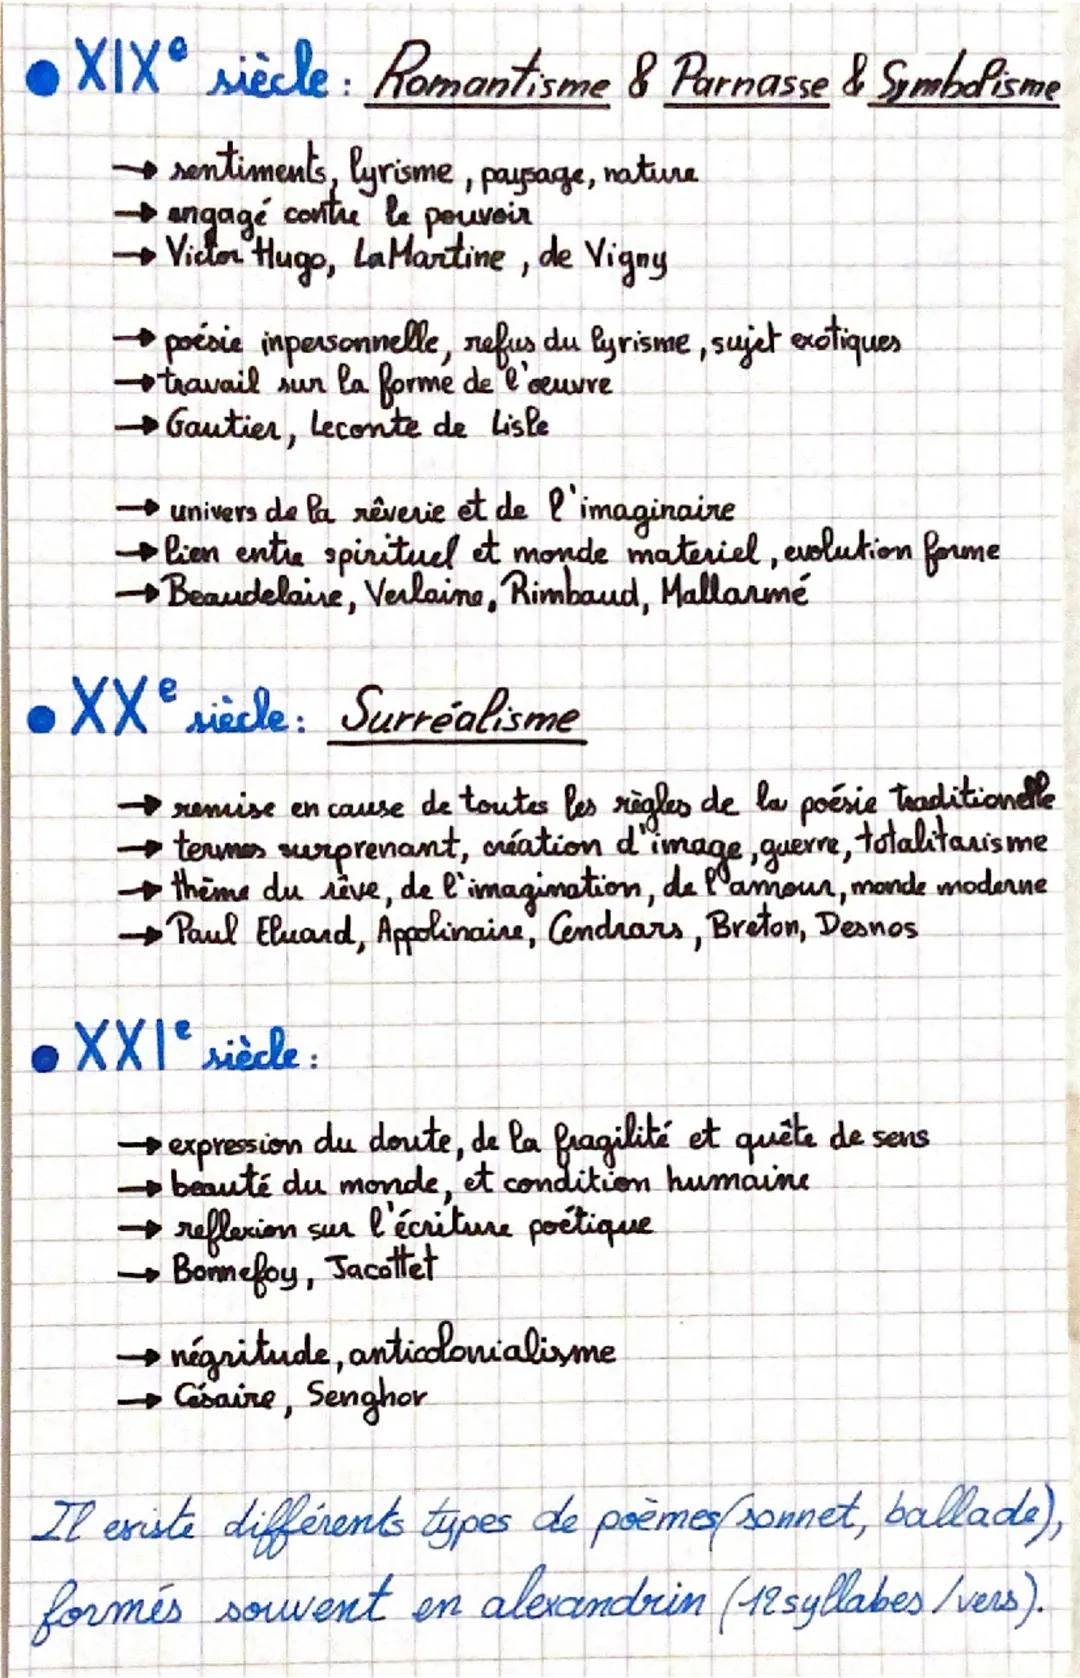 • XIXe siècle : Romantisme & Parnasse & Symbolisme
→ sentiments, lyrisme, paysage, nature
→ engagé contre le pouvoir
→ Victor Hugo, LaMartine, de Vigny
→ poésie inpersonnelle, refus du lyrisme, sujet exotiques
→ travail sur la forme de l'œuvre
→ Gautier, Leconte de Lisle
→ univers de la rêverie et de l'imaginaire
→ lien entre spirituel et monde materiel, evolution forme
→ Beaudelaire, Verlaine, Rimbaud, Mallarmé
• XXe siècle : Surréalisme
→ remise en cause de toutes les règles de la poésie traditionelle
→ termes surprenant, création d'image, guerre, totalitarisme
→ thème du rêve, de l'imagination, de l'amour, monde moderne
→ Paul Eluard, Appolinaire, Cendrars, Breton, Desnos
• XXIe siècle :
→ expression du doute, de la fragilité et quête de sens
→ beauté du monde, et condition humaine
→ reflexion sur l'écriture poétique
→ Bonnefoy, Jacottet
→ négritude, anticolonialisme
→ Césaire, Senghor
Il existe différents types de poèmes (sonnet, ballade),
formés souvent en alexandrin (12 syllabes / vers).